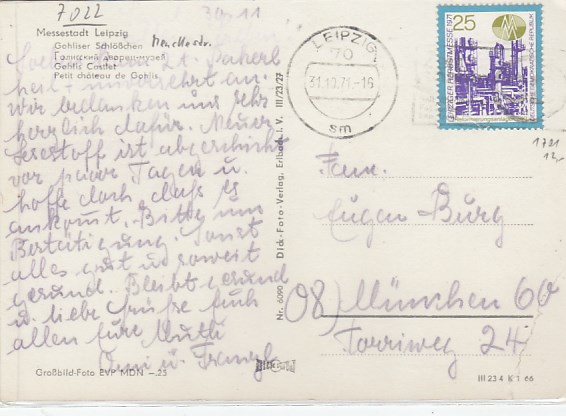 7022
30.11
Messestadt Leipzig
Gohliser Schlößchen
Menckestr.
Gohlis Castle
Petit château de Gohlis
heil + unversehrt an.
Wir bedanken uns sehr
herzlich dafür. Neuer
Lesestoff ist abgeschickt
vor paar Tagen u.
hoffe doch, dass es
ankommt. Bitte um
Bestätigung. Sonst
alles gut u. soweit
gesund. Bleibt gesund
u. liebe Grüße Euch
allen Eure Mutti
Großbild-Foto EVP MDN -.25
Nr. 6090 Dick-Foto-Verlag, Erlbach i. V. III/23/27
LEIPZIG
70
31.10.71.-16
sm
25
LEIPZIGER HERBSTMESSE 1971
DEUTSCHE DEMOKRATISCHE REPUBLIK
Fam.
Eugen Burg
(08) München 60
Torriweg 24
III 23 4 K 1 66